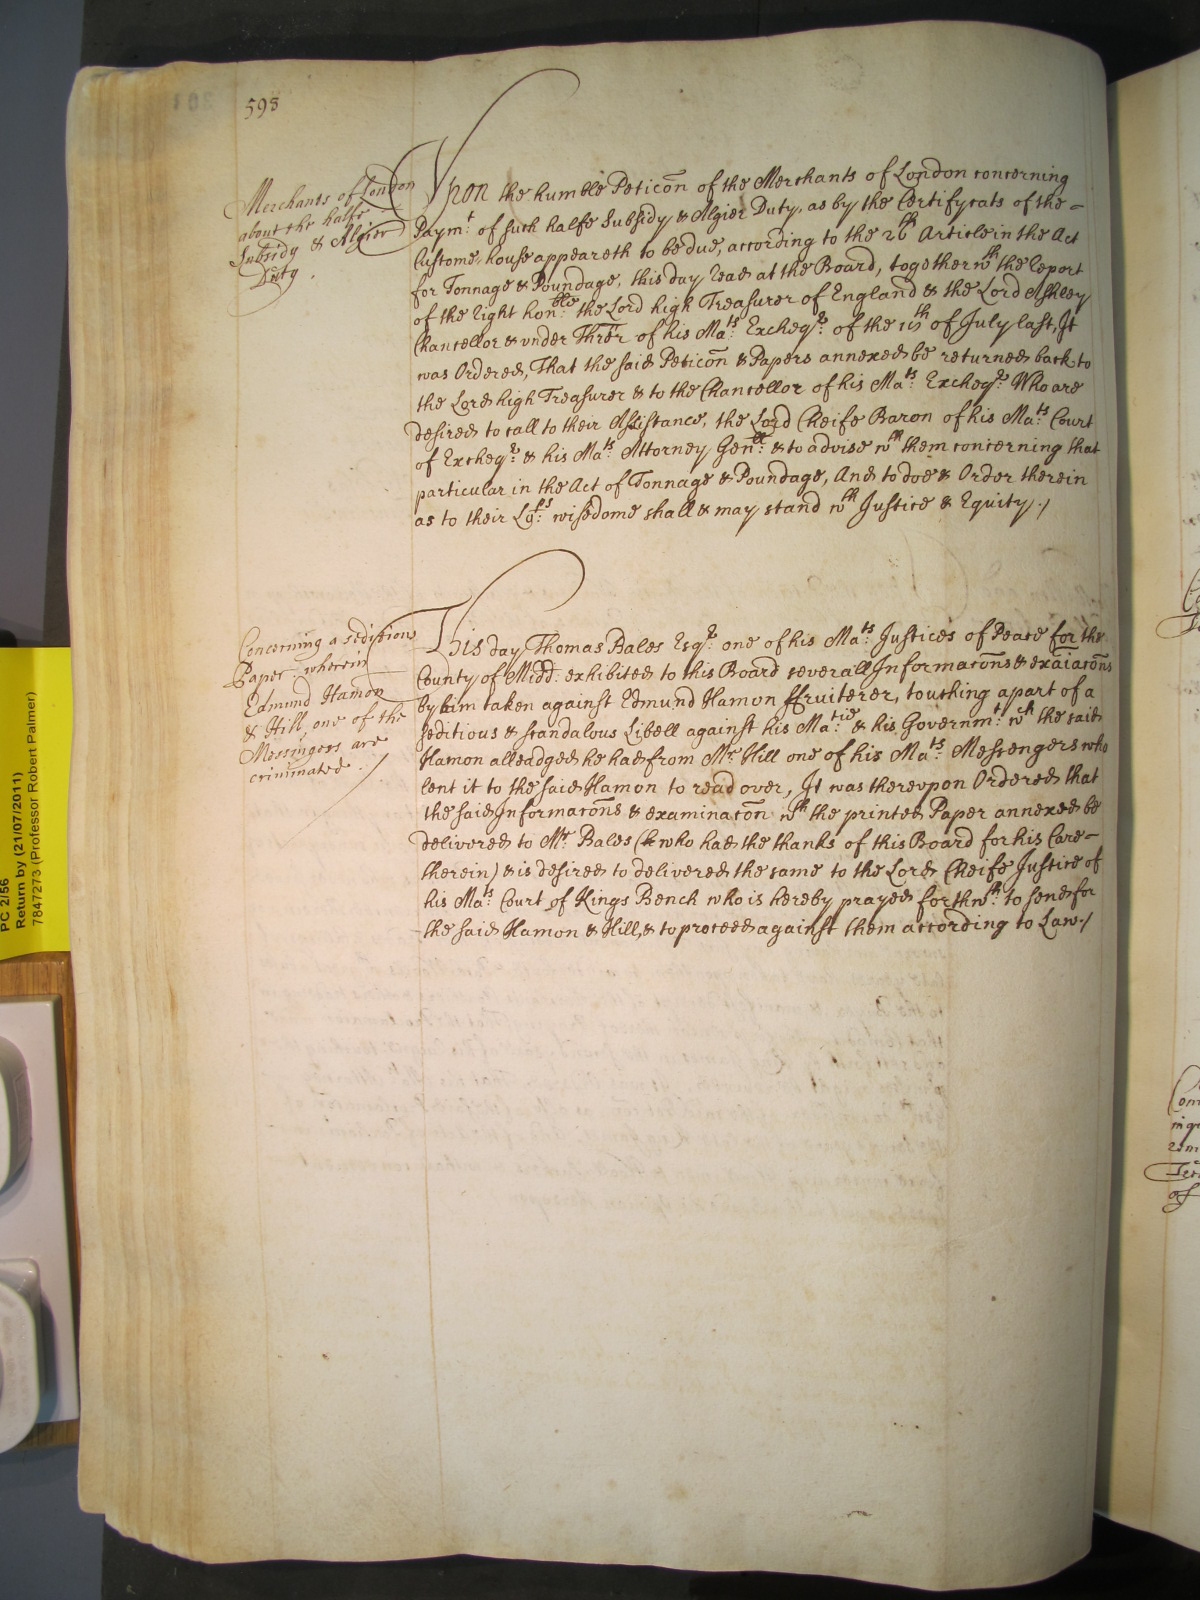 598
Merchants of London
about the halfe
Subsidy & Algier
Duty.
Vpon the humble Peticōn of the Merchants of London concerning
Paymt. of such halfe Subsidy & Algier Duty, as by the Certifycats of the=
Custome house appeareth to be due, according to the 26th Article in the Act
for Tonnage & Poundage, this day read at the Board, together wth the Report
of the right honble. the Lord high Treasurer of England & the Lord Ashley
Chancellor & vnder Thrēr of his Mats. Excheqr. of the 15th of July last, It
was Ordered, That the said Peticōn & Papers annexed be returned back to
the Lord high Treasurer & to the Chancellor of his Mats. Excheqr. Who are
desired to call to their Assistance, the Lord Cheife Baron of his Mats. Court
of Excheqr. & his Mats. Attorney Genll. & to advise wth them concerning that
particular in the Act of Tonnage & Poundage, And to doe & Order therein
as to their Lps. wisedome shall & may stand wth Justice & Equity./
Concerning a seditious
Paper. wherein
Edmund Hamon
& Hill, one of the
Messingers are
criminated./
This day Thomas Bales Esqr. one of his Mats. Justices of Peace for the
County of Midd: exhibited to this Board severall Informacōns & exāiacōns
by him taken against Edmund Hamon ffruiterer, touching a part of a
seditious & scandalous Libell against his Matie. & his Governmt. wch the said
Hamon alleadged he had from Mr. Hill one of his Mats. Messengers who
lent it to the said Hamon to read over, It was therevpon Ordered that
the said Informacōns & examinacōn wth the printed Paper annexed be
delivered to Mr. Bales (who had the thanks of this Board for his Care=
therein) & is desired to delivered the same to the Lord Cheife Justice of
his Mats. Court of Kings Bench who is hereby prayed forthwth. to send for
the said Hamon & Hill, & to proceed against them according to Law./
PC 2/56
Return by (21/07/2011)
7847273 (Professor Robert Palmer)